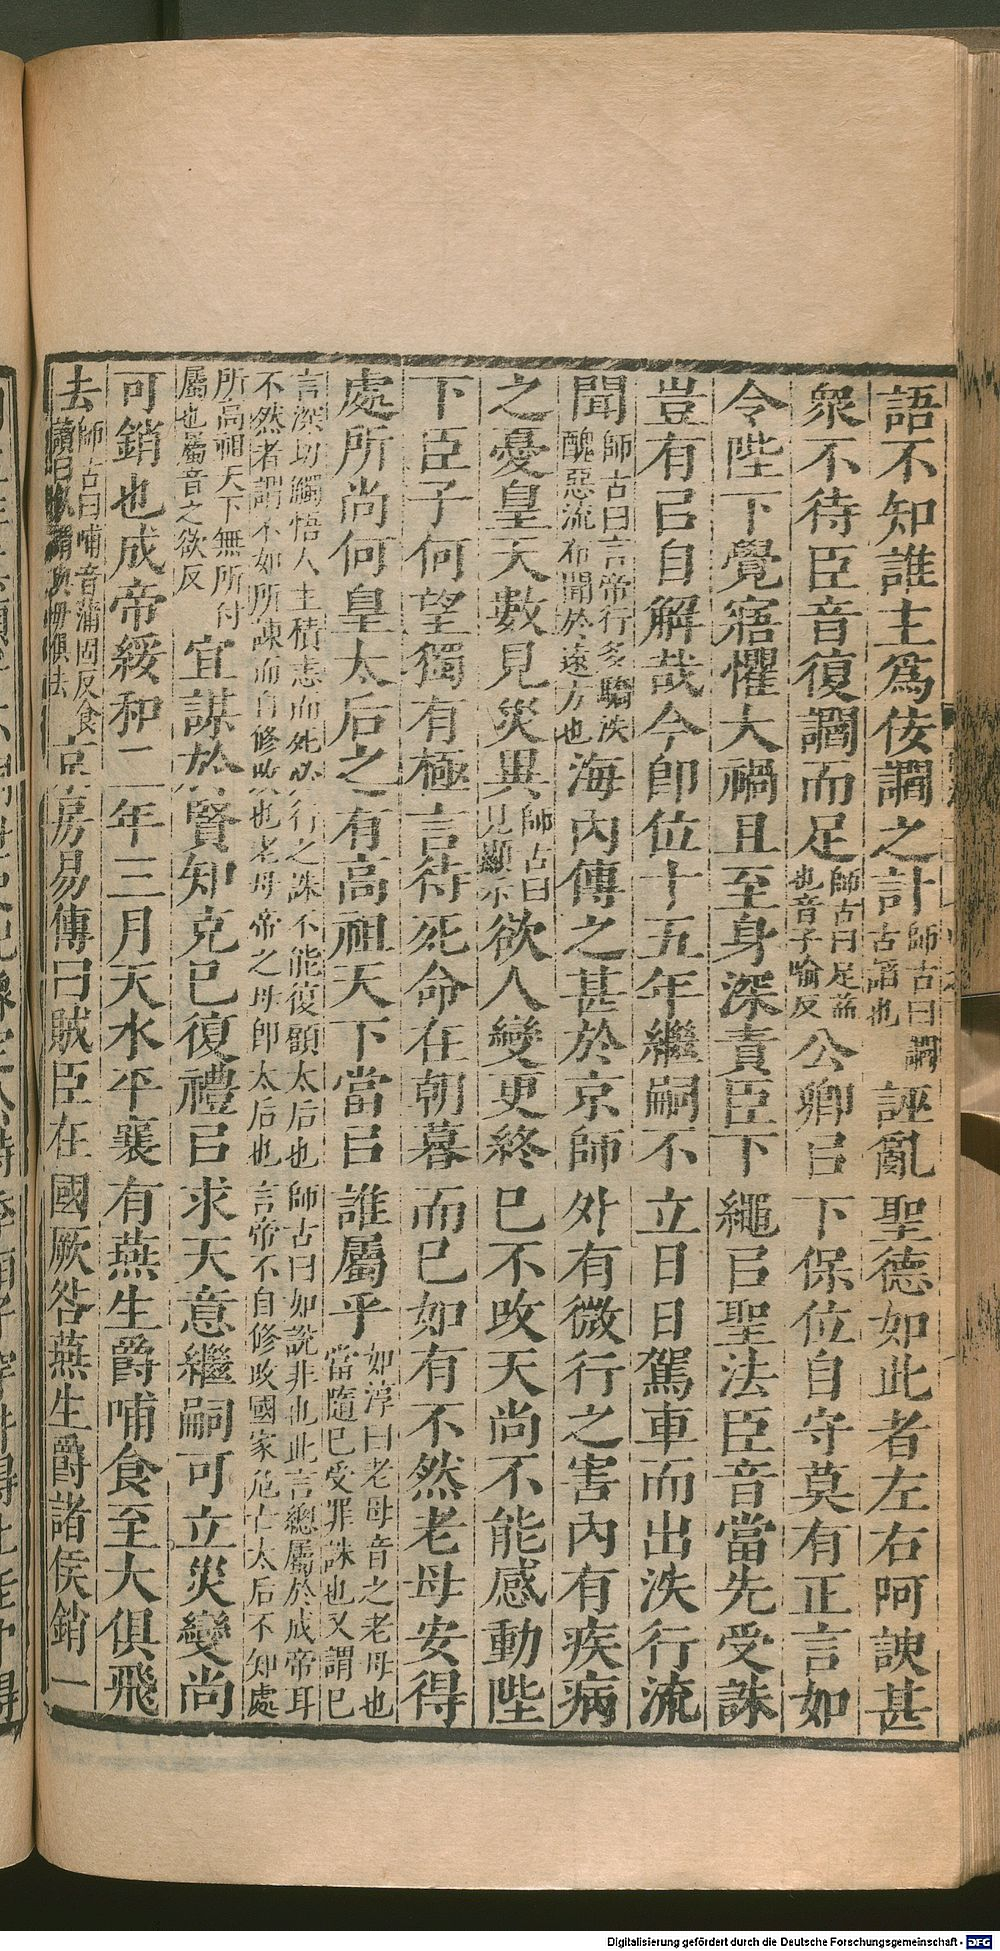 語不知誰主爲佞讇之計師古曰讇古諂也誣亂聖德如此者左右阿諛甚
衆不待臣音復讇而足師古曰足益也音子喻反公卿㠯下保位自守莫有正言如
令陛下覺寤懼大禍且至身深責臣下繩㠯聖法臣音當先受誅
豈有㠯自解哉今卽位十五年繼嗣不立日日駕車而出泆行流
聞師古曰言帝行多驕泆醜惡流布聞於遠方也海內傳之甚於京師外有微行之害內有疾病
之憂皇天數見災異師古曰見顯示欲人變更終已不改天尚不能感動陛
下臣子何望獨有極言待死命在朝暮而已如有不然老母安得
處所尚何皇太后之有高祖天下當㠯誰屬乎如淳曰老母音之老母也當隨已受罪誅也又謂已
言深切觸悟人主積恚而死必行之誅不能復顧太后也師古曰如說非也此言總屬於成帝耳
不然者謂不如所諫而自修改也老母帝之母卽太后也言帝不自修改國家危亡太后不知處
所高祖天下無所付屬也屬音之欲反宜謀於賢知克已復禮㠯求天意繼嗣可立災變尚
可銷也成帝綏和二年三月天水平襄有燕生爵哺食至大俱飛
去師古曰哺音蒲固反食京房易傳曰賊臣在國厥咎燕生爵諸侯銷一
Digitalisierung gefördert durch die Deutsche Forschungsgemeinschaft - DFG